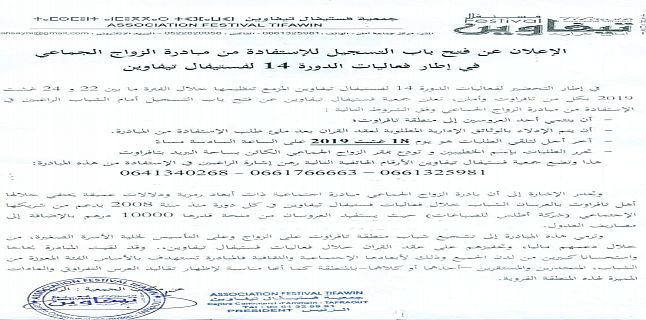 جمعية فستيفال تيفاوين
ASSOCIATION FESTIVAL TIFAWIN
FESTIVAL
تيفاوين
الإعلان عن فتح باب التسجيل للإستفادة من مبادرة الزواج الجماعي
في إطار فعاليات الدورة 14 لفستيفال تيفاوين
في إطار التحضير لفعاليات الدورة 14 لفستيفال تيفاوين المزمع تنظيمها خلال الفترة ما بين 22 و 24 غشت
2019 بكل من تافراوت وأملن، تعلن جمعية فستيفال تيفاوين عن فتح باب التسجيل أمام الشباب الراغبين في
الإستفادة من مبادرة الزواج الجماعي وفق الشروط التالية :
- أن ينتمي أحد العروسين إلى منطقة تافراوت؛
- أن يتم الإدلاء بالوثائق الإدارية المطلوبة لعقد القران بعد ملئ طلب الإستفادة من المبادرة.
- آخر أجل لتلقي الطلبات هو يوم 18 غشت 2019 على الساعة السادسة مساء
- تحرر الطلبات بإسم الخطيبين و توضع بمقر الزواج الجماعي الكائن بساحة البريد بتافراوت
هذا وتضع جمعية فستيفال تيفاوين الأرقام الهاتفية التالية رهن إشارة الراغبين في الإستفادة من هذه المبادرة:
0661325981 - 0661766663 - 0641340268
وتجدر الإشارة إلى أن بادرة الزواج الجماعي مبادرة اجتماعية ذات أبعاد رمزية ودلالات عميقة يحتفي خلالها
أهل تافراوت بالعرسان الشباب خلال فعاليات فستيفال تيفاوين في كل دورة منذ سنة 2008 بدعم من شريكها
الإجتماعي (شركة أطلس للصباغات) حيث يستفيد العروسان من منحة قدرها 10000 درهم بالإضافة إلى
مصاريف العدول.
وترمي هذه المبادرة إلى تشجيع شباب منطقة تافراوت على الزواج وعلى التأسيس لخلية الأسرة الصغيرة، من
خلال دعمهم ماليا، وتحفيزهم على عقد القران خلال فعاليات فستيفال تيفاوين.. وقد لقيت المبادرة نجاحا
واستحسانا كبيرين من لدن الجميع وذلك لأبعادها الإجتماعية والثقافية فالمبادرة تستهدف بالأساس الفئة المعوزة من
الشباب، المنحدرين والمستقرين -أحدهما أو كلاهما- بالمنطقة كما أنها مناسبة لإظهار تقاليد العرس التفراوتي والعادات
المميزة لهذه المنطقة القروية.
ASSOCIATION FESTIVAL TIFAWIN
جمعية فستيفال تيفاوين
TAFRAOUT
PRESIDENT الرئيس
تيفاوين